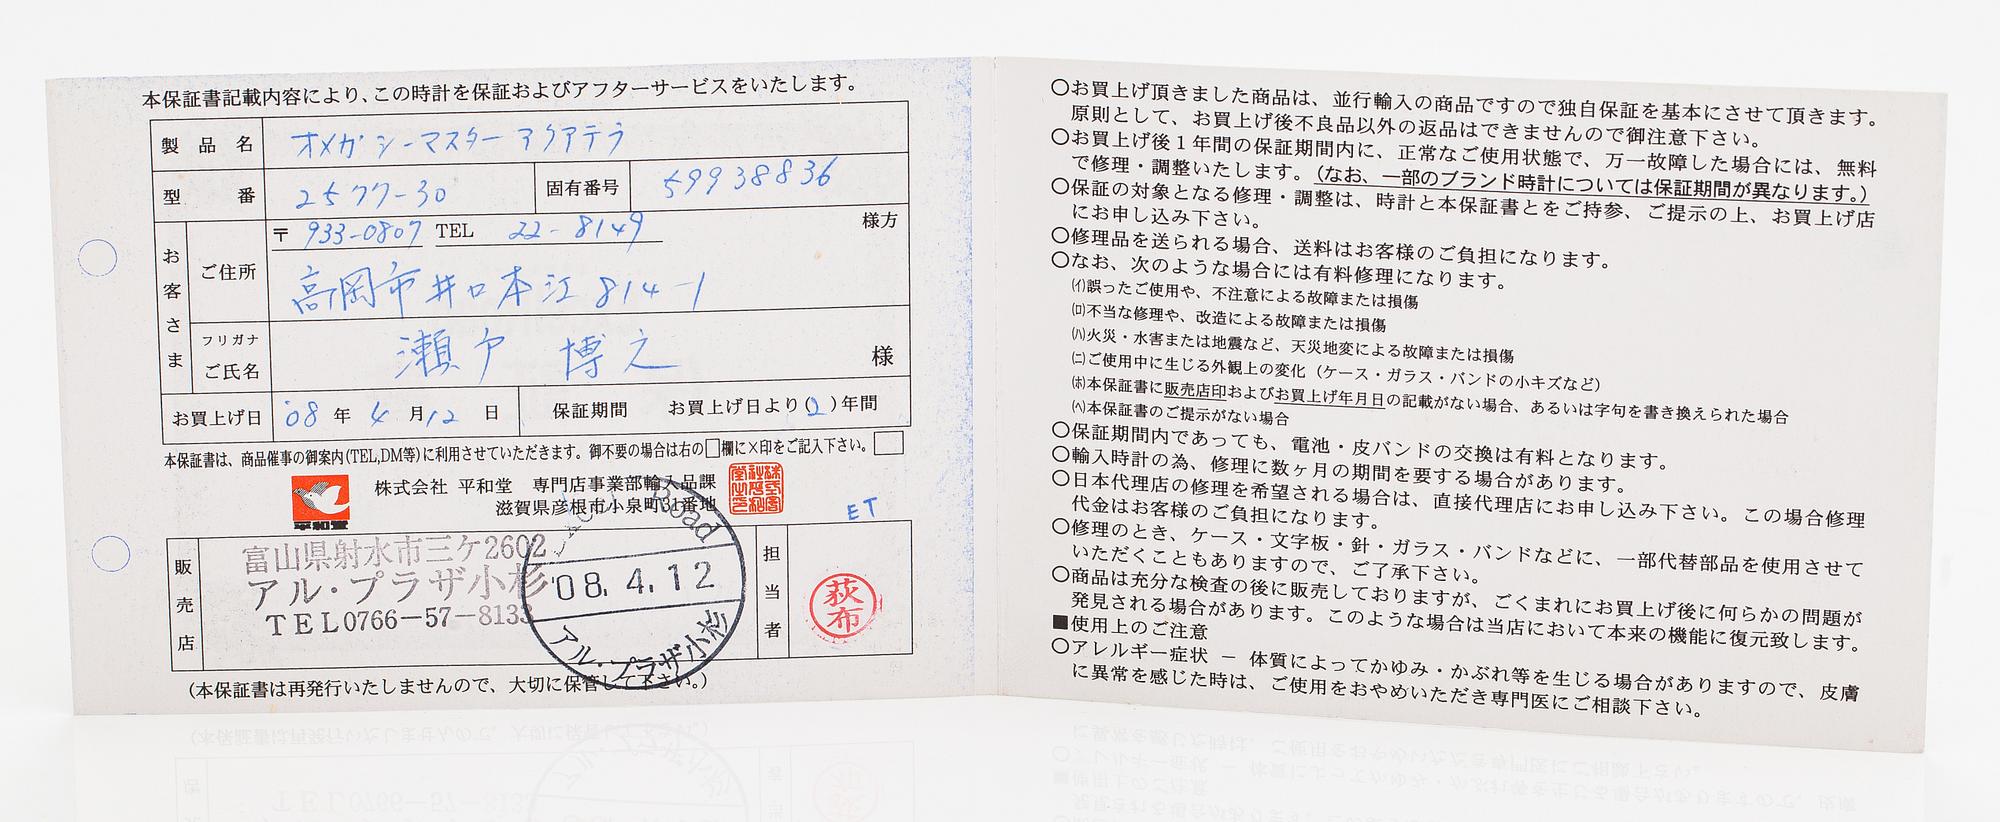 本保証書記載内容により、この時計を保証およびアフターサービスをいたします。
製品名 オメガ シーマスター アクアテラ
型番 2577-30 固有番号 59938836
お客さま ご住所 〒 933-0807 TEL 22-8149 様方
高岡市井口本江 814-1
フリガナ
ご氏名 瀬戸 博之 様
お買上げ日 '08 年 4 月 12 日 保証期間 お買上げ日より(2)年間
本保証書は、商品催事の御案内(TEL,DM等)に利用させていただきます。御不要の場合は右の□欄に×印をご記入下さい。□
平和堂
株式会社 平和堂 専門店事業部輸入品課
滋賀県彦根市小泉町31番地
ET
販売店
富山県射水市三ケ2602
アル・プラザ小杉
TEL0766-57-8133
Road
'08.4.12
アル・プラザ小杉
担当者
荻布
(本保証書は再発行いたしませんので、大切に保管して下さい。)
○お買上げ頂きました商品は、並行輸入の商品ですので独自保証を基本にさせて頂きます。
原則として、お買上げ後不良品以外の返品はできませんので御注意下さい。
○お買上げ後1年間の保証期間内に、正常なご使用状態で、万一故障した場合には、無料
で修理・調整いたします。(なお、一部のブランド時計については保証期間が異なります。)
○保証の対象となる修理・調整は、時計と本保証書とをご持参、ご提示の上、お買上げ店
にお申し込み下さい。
○修理品を送られる場合、送料はお客様のご負担になります。
○なお、次のような場合には有料修理になります。
㈑誤ったご使用や、不注意による故障または損傷
(ロ)不当な修理や、改造による故障または損傷
(ハ)火災・水害または地震など、天災地変による故障または損傷
(ニ)ご使用中に生じる外観上の変化(ケース・ガラス・バンドの小キズなど)
(ホ)本保証書に販売店印およびお買上げ年月日の記載がない場合、あるいは字句を書き換えられた場合
(ヘ)本保証書のご提示がない場合
○保証期間内であっても、電池・皮バンドの交換は有料となります。
○輸入時計の為、修理に数ヶ月の期間を要する場合があります。
○日本代理店の修理を希望される場合は、直接代理店にお申し込み下さい。この場合修理
代金はお客様のご負担になります。
○修理のとき、ケース・文字板・針・ガラス・バンドなどに、一部代替部品を使用させて
いただくこともありますので、ご了承下さい。
○商品は充分な検査の後に販売しておりますが、ごくまれにお買上げ後に何らかの問題が
発見される場合があります。このような場合は当店において本来の機能に復元致します。
■使用上のご注意
○アレルギー症状 － 体質によってかゆみ・かぶれ等を生じる場合がありますので、皮膚
に異常を感じた時は、ご使用をおやめいただき専門医にご相談下さい。